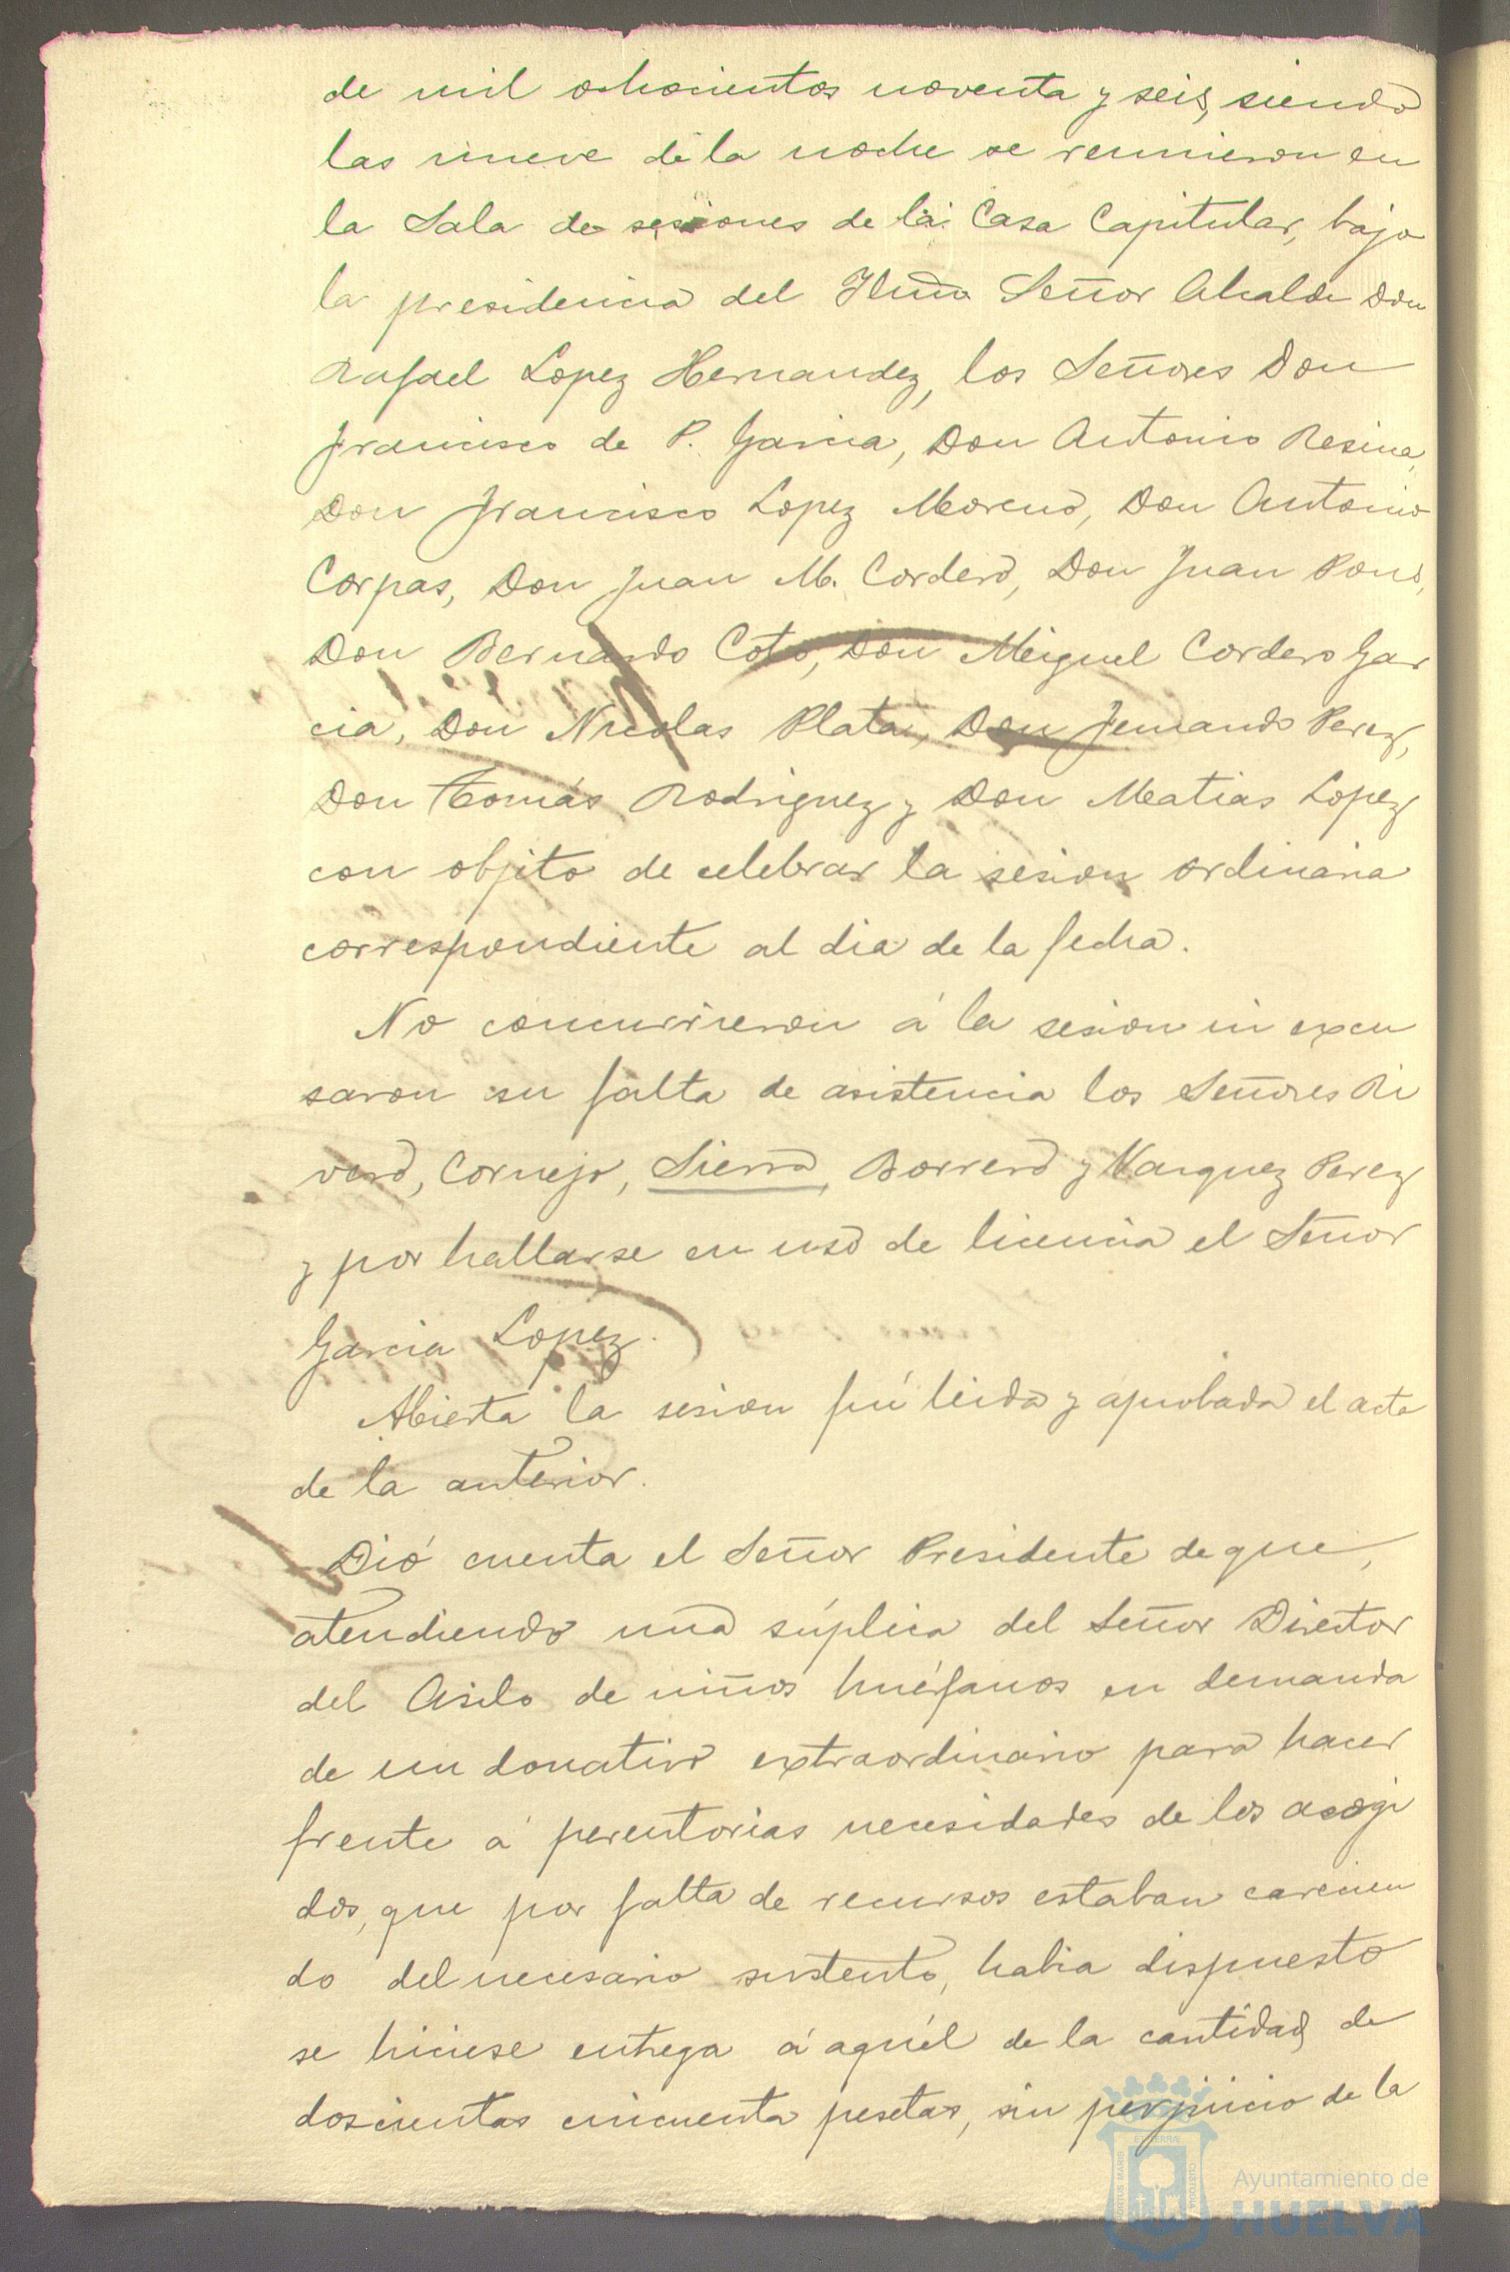 de mil ochocientos noventa y seis, siendo
las nueve de la noche se reunieron en
la Sala de sesiones de la Casa Capitular, bajo
la presidencia del Iltmo Señor Alcalde Don
Rafael Lopez Hernandez, los Señores Don
Francisco de P. Garcia, Don Antonio Resina,
Don Francisco Lopez Moreno, Don Antonio
Corpas, Don Juan M. Cordero, Don Juan Pons,
Don Bernardo Coto, Don Miguel Cordero Gar
cia, Don Nicolas Plata, Don Fernando Perez,
Don Tomás Rodriguez y Don Matias Lopez
con objeto de celebrar la sesion ordinaria
correspondiente al dia de la fecha.
No concurrieron á la sesion ni excu
saron su falta de asistencia los Señores Ri
vero, Cornejo, Sierra, Borrero y Vazquez Perez
y por hallarse en uso de licencia el Señor
Garcia Lopez.
Abierta la sesion fué leida y aprobada el acta
de la anterior.
Dió cuenta el Señor Presidente de que,
atendiendo una súplica del Señor Director
del Asilo de niños huérfanos en demanda
de un donativo extraordinario para hacer
frente á perentorias necesidades de los acogi
dos, que por falta de recursos estaban carecien
do del necesario sustento, habia dispuesto
se hiciese entrega á aquél de la cantidad de
doscientas cincuenta pesetas, sin perjuicio de la
Ayuntamiento de
HUELVA